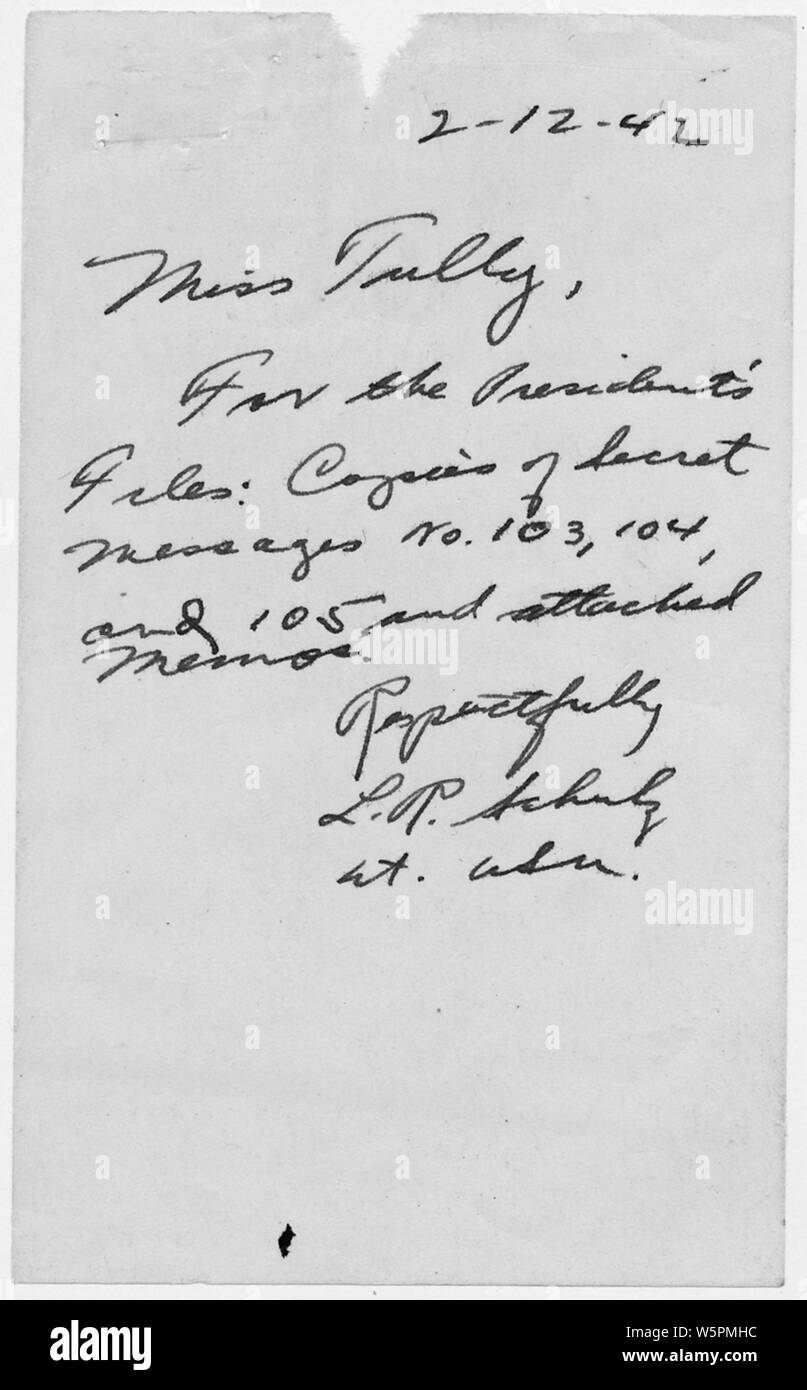 2-12-42
Miss Tully,
For the President's
Files: Copies of Secret
Messages No. 103, 104,
and 105 and attached
Memos.
Respectfully
L.R. Schulz
Lt. USN.
alamy
Image ID: W5PMHC
www.alamy.com